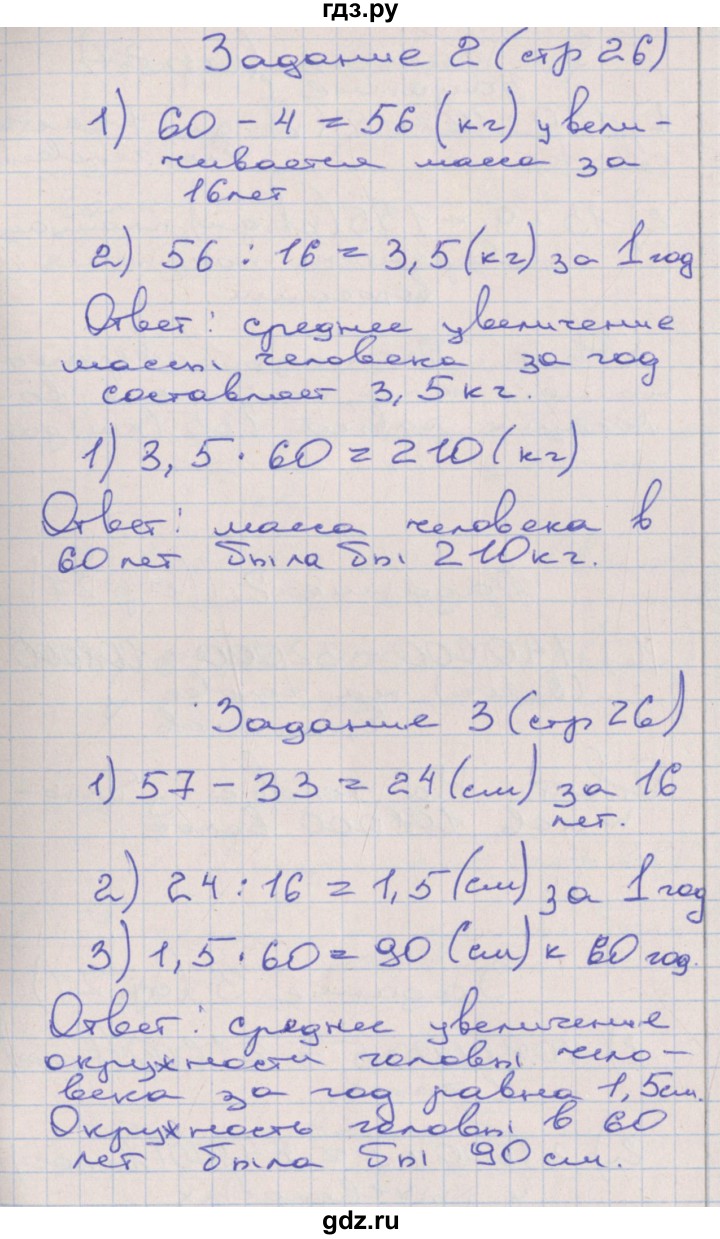 гдз.ру
Задание 2 (стр 26)
1) 60 - 4 = 56 (кг) увели-
чивается масса за
16 лет
2) 56 : 16 = 3,5 (кг) за 1 год
Ответ: среднее увеличение
массы человека за год
составляет 3,5 кг.
1) 3,5 · 60 = 210 (кг)
Ответ: масса человека в
60 лет была бы 210 кг.
Задание 3 (стр 26)
1) 57 - 33 = 24 (см) за 16
лет.
2) 24 : 16 = 1,5 (см) за 1 год
3) 1,5 · 60 = 90 (см) к 60 год.
Ответ: среднее увеличение
окружности головы чело-
века за год равна 1,5 см.
Окружность головы в 60
лет была бы 90 см.
gdz.ru